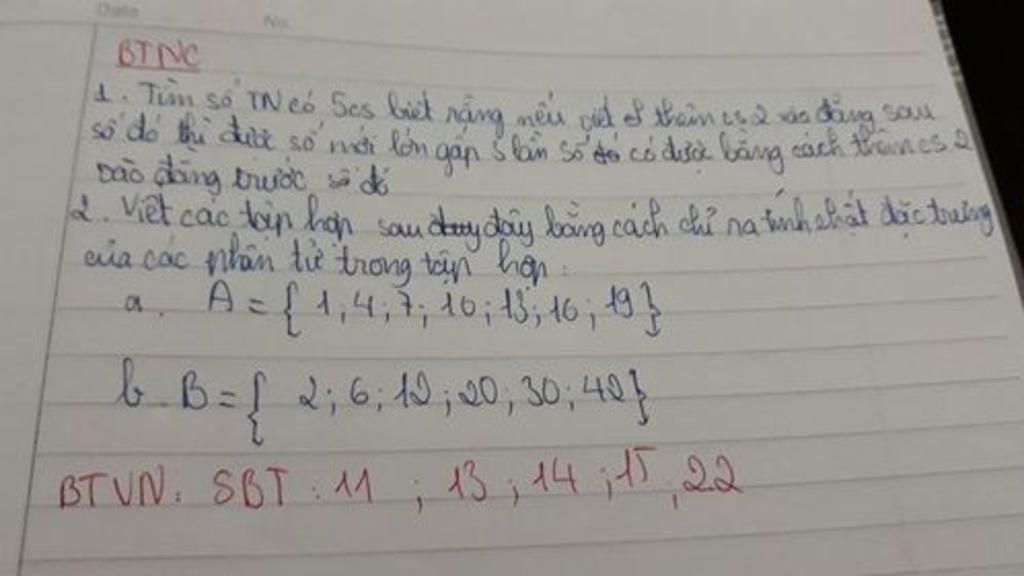 Date
No.
BTNC
1. Tìm số TN có 5cs biết rằng nếu viết thêm cs 2 vào đằng sau
số đó thì được số mới lớn gấp 3 lần số có được bằng cách thêm cs 2
vào đằng trước số đó
2. Viết các tập hợp sau đây bằng cách chỉ ra tính chất đặc trưng
của các phần tử trong tập hợp:
a. A = { 1; 4; 7; 10; 13; 16; 19 }
b. B = { 2; 6; 12; 20; 30; 42 }
BTVN: SBT: 11 ; 13 ; 14 ; 15 , 22